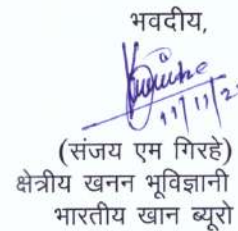 भवदीय,
11/11/2
(संजय एम गिरहे)
क्षेत्रीय खनन भूविज्ञानी
भारतीय खान ब्यूरो